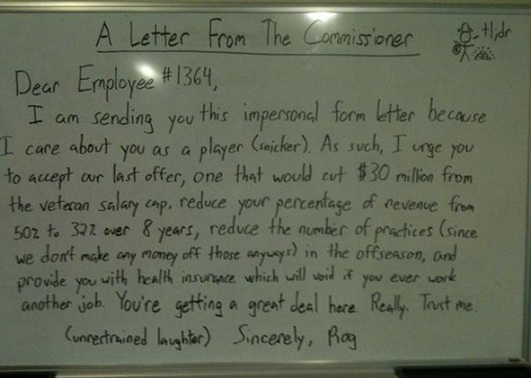 A Letter From The Commissioner
tl;dr
Dear Employee #1364,
I am sending you this impersonal form letter because
I care about you as a player (snicker). As such, I urge you
to accept our last offer, one that would cut $30 million from
the veteran salary cap, reduce your percentage of revenue from
50% to 32% over 8 years, reduce the number of practices (since
we don't make any money off those anyways) in the offseason, and
provide you with health insurance which will void if you ever work
another job. You're getting a great deal here. Really. Trust me.
(unrestrained laughter) Sincerely, Rog